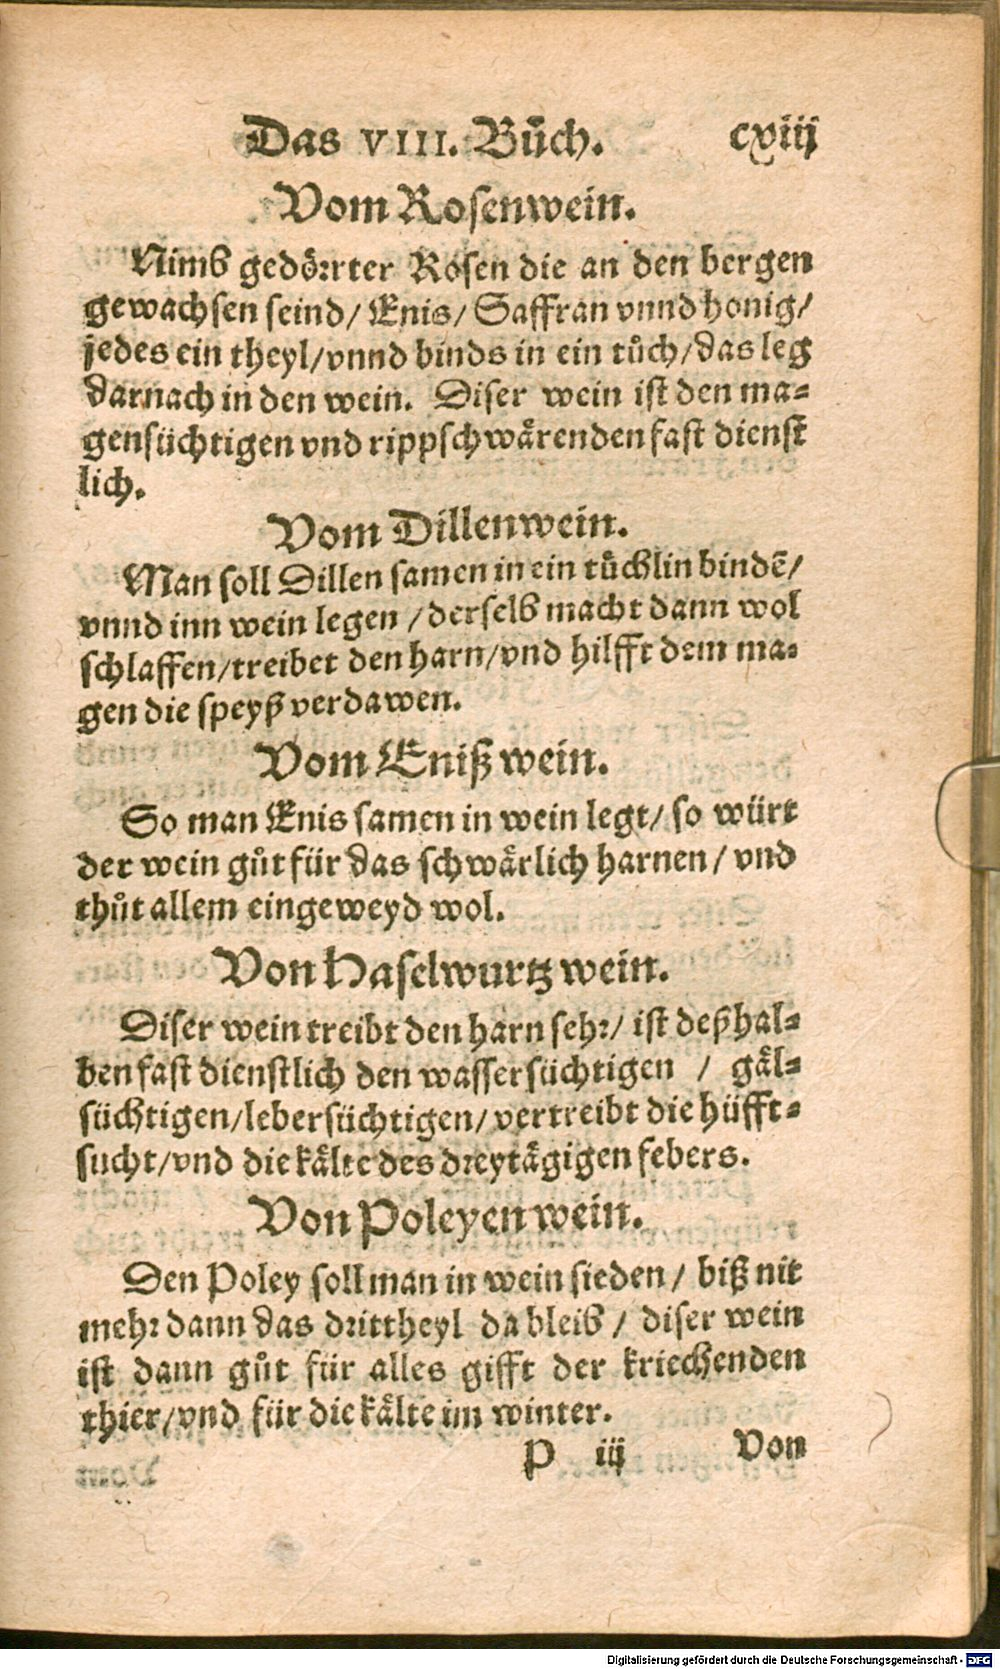 Das VIII. Bůch. cxiij
Vom Rosenwein.
Nimb gedörrter Rosen die an den bergen
gewachsen seind/ Enis/ Saffran vnnd honig/
jedes ein theyl/vnnd binds in ein tůch/das leg
darnach in den wein. Diser wein ist den ma-
gensüchtigen vnd rippschwärenden fast dienst
lich.
Vom Dillenwein.
Man soll Dillen samen in ein tůchlin bindē/
vnnd inn wein legen /derselb macht dann wol
schlaffen/treibet den harn/vnd hilfft dem ma-
gen die speyß verdawen.
Vom Eniß wein.
So man Enis samen in wein legt/ so würt
der wein gůt für das schwärlich harnen/ vnd
thůt allem eingeweyd wol.
Von Haselwurtz wein.
Diser wein treibt den harn sehr/ ist deßhal-
ben fast dienstlich den wassersüchtigen / gäl-
süchtigen/lebersüchtigen/vertreibt die hüfft-
sucht/vnd die kälte des dreytägigen febers.
Von Poleyen wein.
Den Poley soll man in wein sieden/ biß nit
mehr dann das drittheyl da bleib/ diser wein
ist dann gůt für alles gifft der kriechenden
thier/vnd für die kälte im winter.
P iij Von
Digitalisierung gefördert durch die Deutsche Forschungsgemeinschaft - DFG